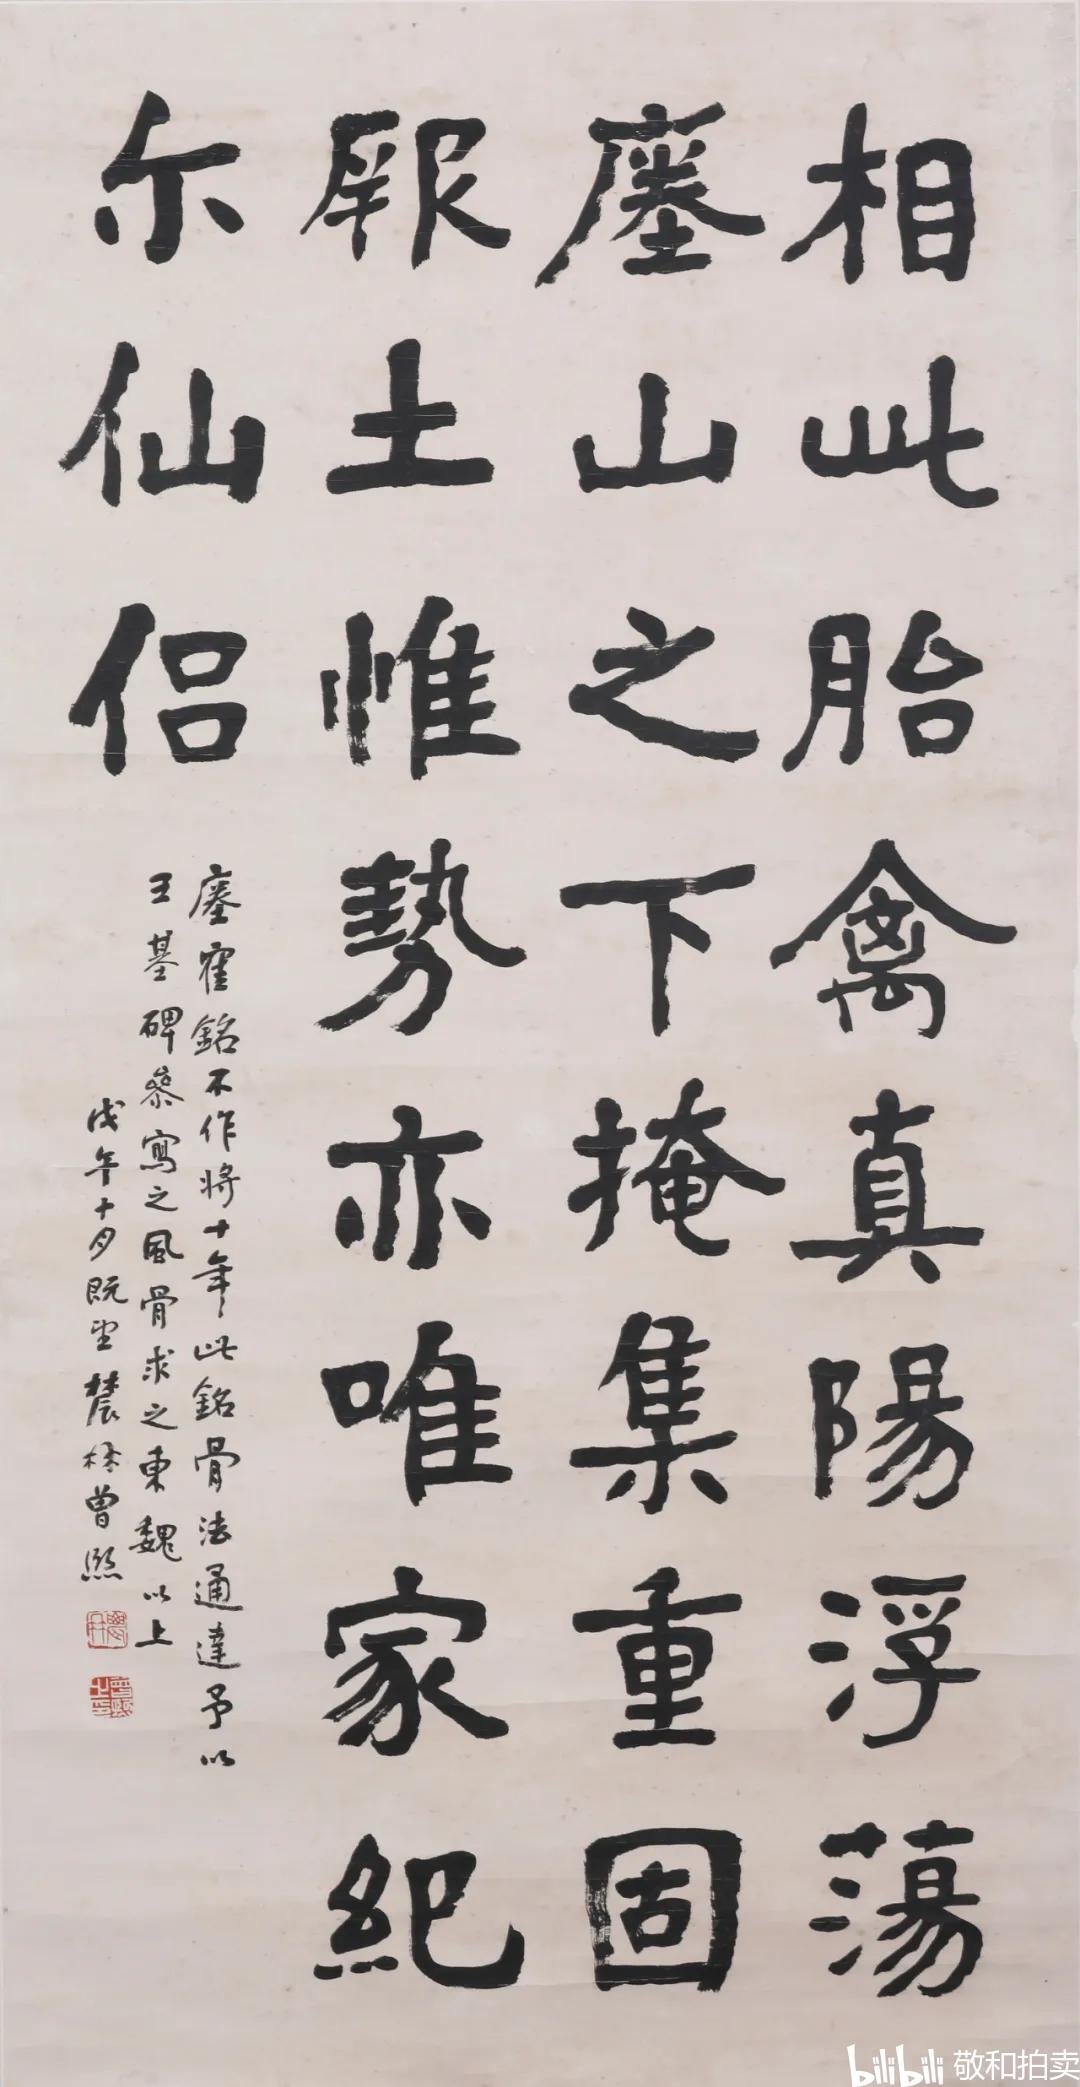 相此胎禽真陽浮蕩
廛山之下掩集重固
厥土惟勢亦唯家紀
尔仙侣
廛寉銘不作將十年此銘骨法通達予以
王基碑叅寫之風骨求之東魏以上
戊午十月既望農髯曾熙
bilibili 敬和拍卖